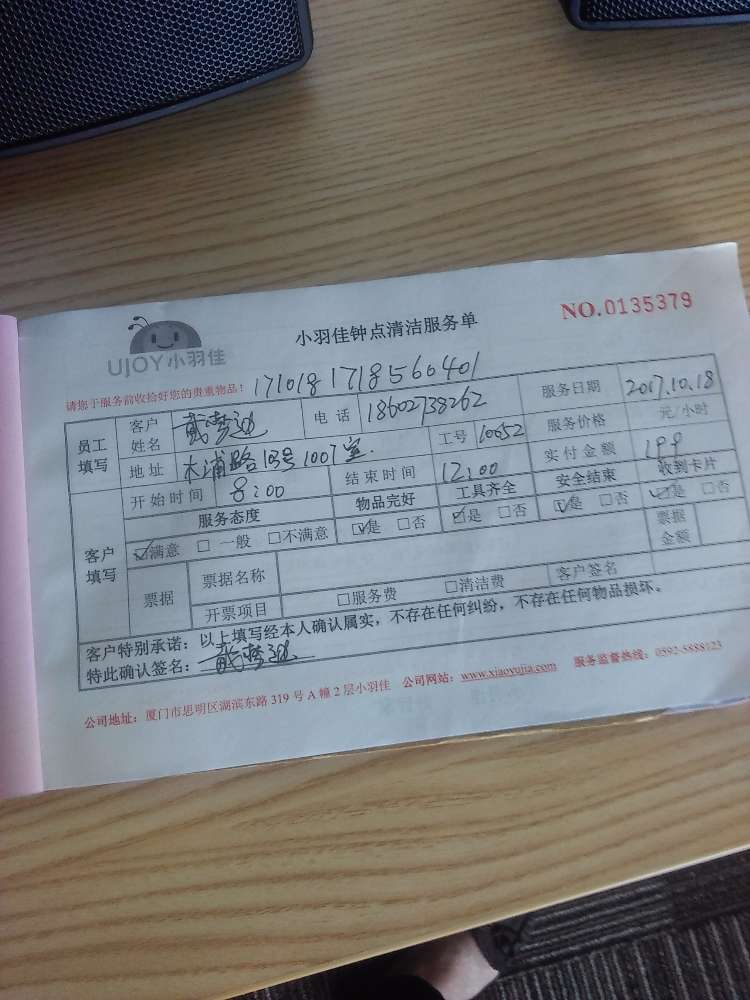 小羽佳钟点清洁服务单
NO.0135379
UJOY小羽佳
请您于服务前收拾好您的贵重物品！ 171018 1718560401
员工填写 客户姓名 戴梦 电话 18602738262 服务日期 2017.10.18
地址 木浦路103号1007室. 工号 10052 服务价格 元/小时
客户填写 开始时间 8:00 结束时间 12:00 实付金额 199
服务态度 物品完好 工具齐全 安全结束 收到卡片
☑满意 □一般 □不满意 ☑是 □否 ☑是 □否 ☑是 □否 ☑是 □否
票据 票据名称 票据金额
开票项目 □服务费 □清洁费 客户签名
客户特别承诺：以上填写经本人确认属实，不存在任何纠纷，不存在任何物品损坏。
特此确认签名： 戴梦
公司地址：厦门市思明区湖滨东路319号A幢2层小羽佳 公司网站：www.xiaoyujia.com 服务监督热线：0592-5888123